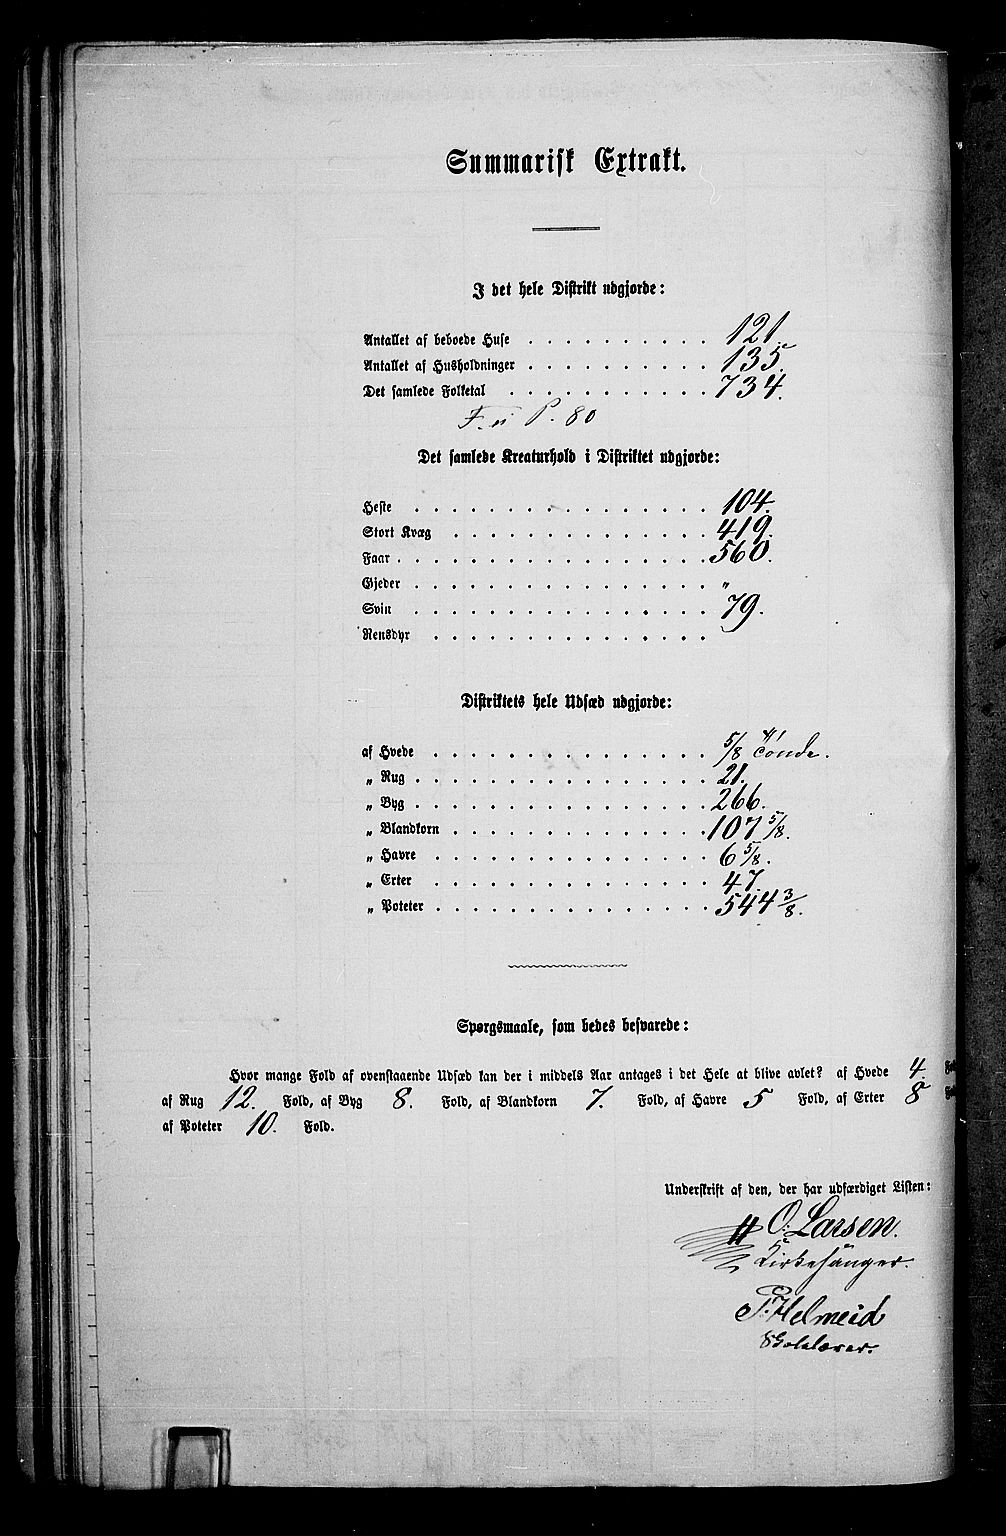 Summarisk Extrakt.
I det hele Distrikt udgjorde:
Antallet af beboede Huse . . . . . . . . . . 121.
Antallet af Husholdninger . . . . . . . . . . 135.
Det samlede Folketal . . . . . . . . . . . 734.
P. 80
Det samlede Kreaturhold i Distriktet udgjorde:
Heste . . . . . . . . . . . . . . . 104.
Stort Kvæg . . . . . . . . . . . . . 419.
Faar . . . . . . . . . . . . . . . . 560.
Gjeder . . . . . . . . . . . . . . . "
Svin . . . . . . . . . . . . . . . 79.
Rensdyr . . . . . . . . . . . . . .
Distriktets hele Udsæd udgjorde:
af Hvede . . . . . . . . . . . . . . 5/8 Tönde.
„ Rug . . . . . . . . . . . . . . . 21.
„ Byg . . . . . . . . . . . . . . . 266.
„ Blandkorn . . . . . . . . . . . . . 107 5/8.
„ Havre . . . . . . . . . . . . . . 6 5/8.
„ Erter . . . . . . . . . . . . . . 47.
„ Poteter . . . . . . . . . . . . . . 544 3/8.
Spørgsmaale, som bedes besvarede:
Hvor mange Fold af ovenstaaende Udsæd kan der i middels Aar antages i det Hele at blive avlet? af Hvede 4.
af Rug 12. Fold, af Byg 8. Fold, af Blandkorn 7. Fold, af Havre 5 Fold, af Erter 8
af Poteter 10. Fold.
Underskrift af den, der har udfærdiget Listen:
O. Larsen.
Kirkesänger.
P. Helmeid
Skolelærer.